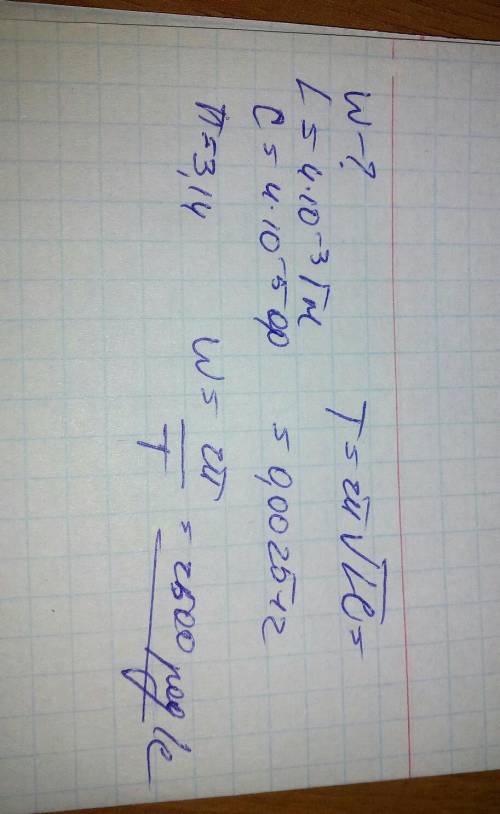 W-?
L = 4·10⁻³ Гн
C = 4·10⁻⁵ Ф
π = 3,14
T = 2π√LC =
= 0,002512
W = 2π/T = 2500 рад/с